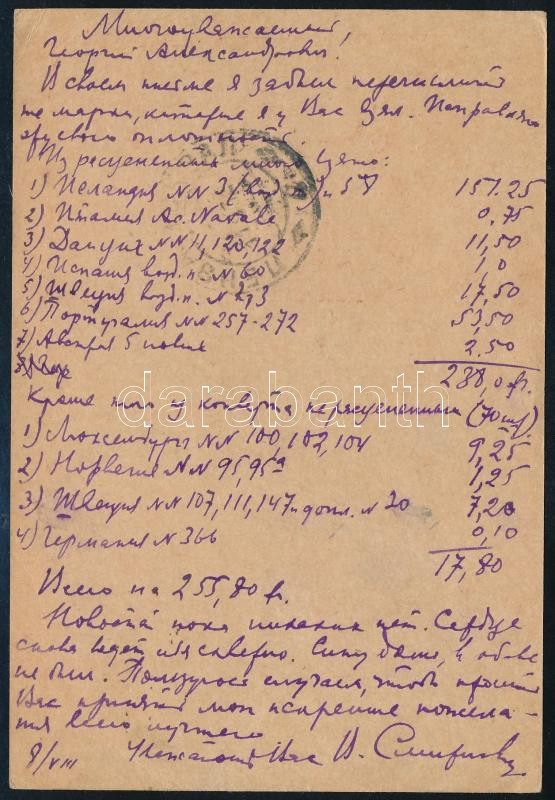 Многоуважаемый,
Георгий Александрович!
В своем письме я забыл перечислить
те марки, которые я у Вас взял. Исправляю
Из
1) Исландия NN 3 5 151.25
2) Италия Ac. Navale 0,75
3) Данциг NN 11, 120, 122 11,50
4) Испания возд. п. N 60 1,0
5) Швеция возд. п. N 2, 3 17,50
6) Португалия NN 257-272 53,50
7) Австрия 5 новые 2.50
238,0 fr.
Кроме того у конверта (70 шт.)
1) Люксембург NN 100, 102, 104 9,25
2) Норвегия NN 95, 95a 1,25
3) Швеция NN 107, 111, 147 и допл. N 20 7,20
4) Германия N 366 0,10
17,80
Всего на 255,80 fr.
Новостей пока никаких нет. Сердце
снова ведет себя скверно.
не был. Пользуюсь случаем, чтобы просить
Вас принять мои искренние пожела-
ния всего лучшего.
9/VIII Уважающий Вас В. Смирнов
darabanth